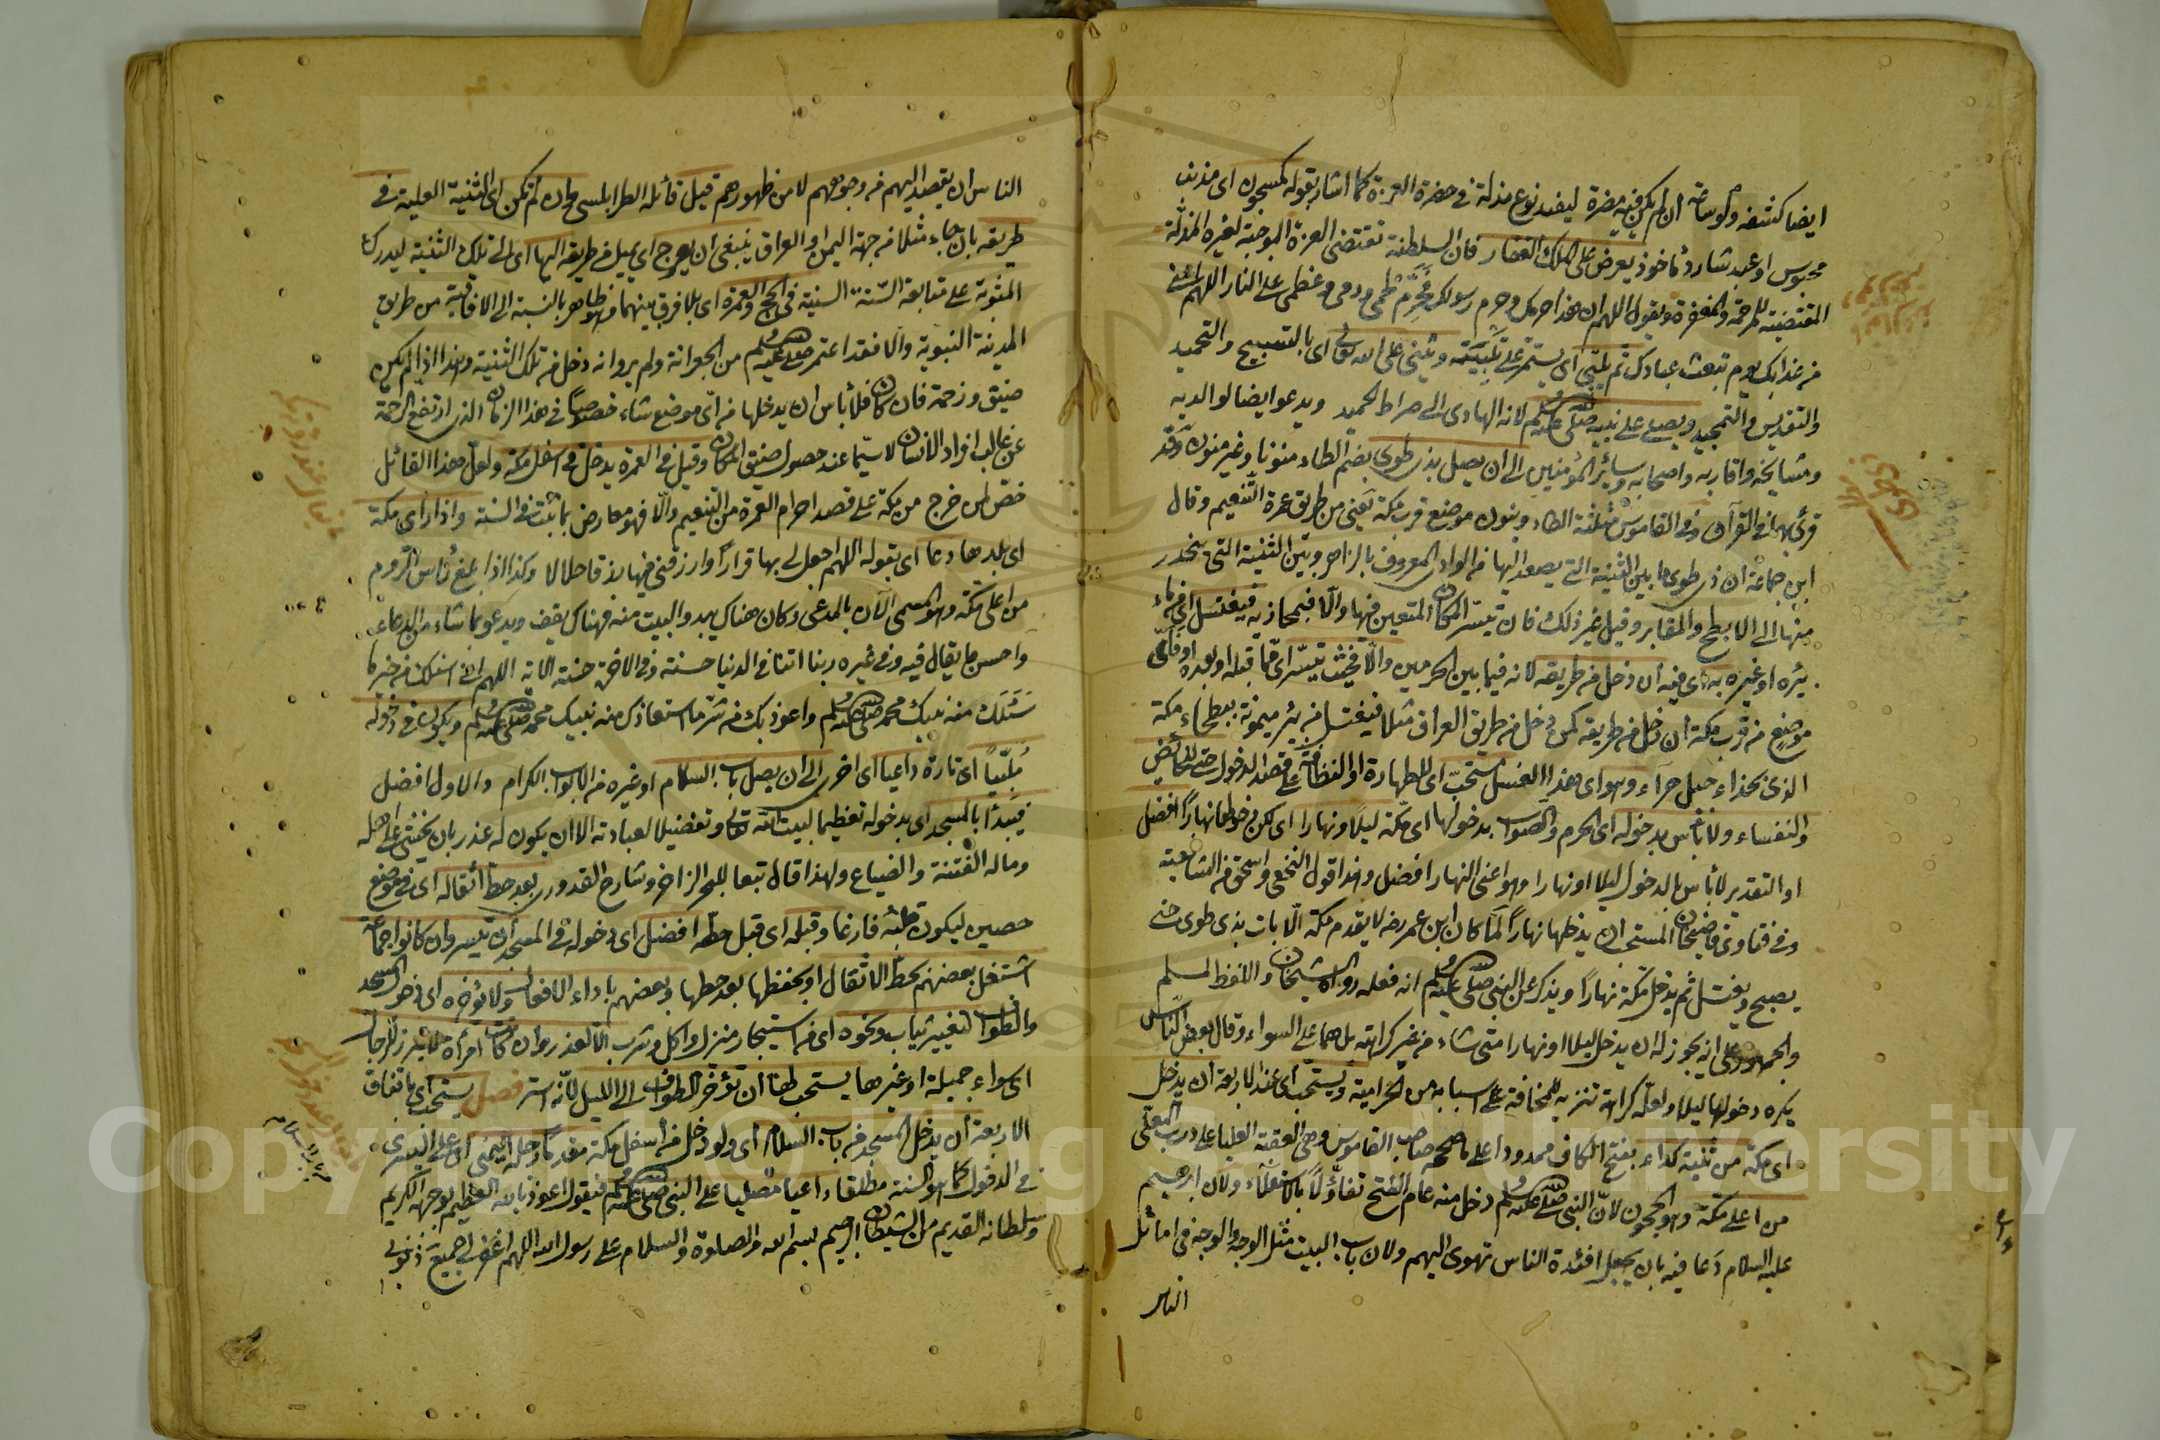 ايضا كشفه وكوسامة ان لم يكن فيه مضرة ليفيد نوع مذلة في حضرة العزة كما اشار بقوله كمسجون اى مذنب
محبوس او عبد شارد مأخوذ يعرض على الملك الغفار فان السلطنة تقتضى العزة الموجبة لغيره المذلة
المقتضية للرحمة والمغفرة ويقول اللهم ان هذا حرمك وحرم رسولك فحرم لحمى ودمى وعظمى على النار اللهم امنى
من عذابك يوم تبعث عبادك ثم يلبى اى يستمر على تلبيته ويثنى على الله تعالى اى بالتسبيح والتحميد
والتقديس والتمجيد ويصلى على نبيه صلى الله عليه وسلم لانه الهادى الى صراط الحميد ويدعو ايضا لوالديه
ومشايخه واقاربه واصحابه وسائر المؤمنين الى ان يصل بذى طوى بضم الطاء منونا وغير منون وقد
قرئ بهما فى القرآن وفى القاموس مثلثة الطاء وينون موضع قرب مكة يعنى من طريق عمرة التنعيم وقال
ابن جماعة ان ذى طوى ما بين الثنية التى يصعد اليها من الوادى المعروف بالزاهر وبين الثنية التى ينحدر
منها الى الابطح والمقابر وقيل غير ذلك فان تيسر المكان المتعين فيها والا فبمحاذيه فيغتسل اى من ماء
بئره او غيره به اى فيه ان دخل من طريقه لانه فيما بين الحرمين والا فحيث تيسر اى مما قبله او بعده او فى اى
موضع من قرب مكة ان دخل من طريقه كمن دخل من طريق العراق مثلا فيغتسل من بئر ميمونة ببطحاء مكة
الذى بحذاء جبل حراء وهو اى هذا الغسل مستحب اى للطهارة او النظافة على قصد الدخول حتى للحائض
والنفساء ولا بأس بدخوله اى الحرم والصواب بدخولها اى مكة ليلا ونهارا اى لكن دخولها نهارا افضل
او التقدير لا بأس بالدخول ليلا او نهارا وهو اعنى النهار افضل وهذا قول النخعى واسحق من الشافعية
وفى فتاوى قاضيخان المستحب ان يدخلها نهارا لما كان ابن عمر رضه لا يقدم مكة الا بات بذى طوى حتى
يصبح ويغتسل ثم يدخل مكة نهارا ويذكر عن النبى صلى الله عليه وسلم انه فعله رواه الشيخان واللفظ لمسلم
والجمهور على انه يجوز له ان يدخل ليلا او نهارا متى شاء من غير كراهة بل هما على السواء وقال بعض الناس
يكره دخولها ليلا ولعله كراهة تنزيه للمخافة على اسبابه من الحرامية ويستحب اى عند الاربعة ان يدخل
اى مكة من ثنية كداء بفتح الكاف ممدودا على ما صححه صاحب القاموس وهى العقبة العليا على درب المعلى
من اعلى مكة وهو الحجون لان النبى صلى الله عليه وسلم دخل منه عام الفتح تفاؤلا بالاستعلاء ولان ابرهيم
عليه السلام دعا فيه بان يجعل افئدة الناس تهوى اليهم ولان باب البيت مثل الوجه والوجه فى اماثل
الناس
الناس ان يقصد اليهم من وجوههم لا من ظهورهم قيل قائله الطرابلسى وان لم تكن اى الثنية العليا فى
طريقه بان جاء مثلا من جهة اليمن او العراق ينبغى ان يعرج اى يميل من طريقه اليها اى الى تلك الثنية ليدرك
المثوبة على متابعة السنة السنية فى الحج والعمرة اى بلا فرق بينهما وهو ظاهر بالنسبة الى الافاقية من طريق
المدينة النبوية والا فقد اعتمر صلى الله عليه وسلم من الجعرانة ولم يروا انه دخل من تلك الثنية وهذا اذا لم يكن
ضيق وزحمة فان كان فلا بأس ان يدخلها من اى موضع شاء خصوصا فى هذا الزمان الذى ارتفع الرحمة
عن غالب افراد الانسان لا سيما عند حصول ضيق المكان وقيل فى العمرة يدخل من اسفل مكة ولعل هذا القائل
خص لمن خرج من مكة على قصد احرام العمرة من التنعيم والا فهو معارض بما ثبت فى السنة واذا رأى مكة
اى بلدها دعا اى بقوله اللهم اجعل لى بها قرارا وارزقنى فيها رزقا حلالا وكذا اذا بلغ رأس الروم
من اعلى مكة وهو المسمى الآن بالمدعى وكان هناك يبدو البيت منه فهناك يقف ويدعو بما شاء من الدعاء
واحسن ما يقال فيه وفى غيره ربنا اتنا فى الدنيا حسنة وفى الاخرة حسنة الاية اللهم انى اسئلك من خير ما
سئلك منه نبيك محمد صلى الله عليه وسلم واعوذ بك من شر ما استعاذك منه نبيك محمد صلى الله عليه وسلم ويكون فى دخوله
ملبيا اى تارة داعيا اى اخرى الى ان يصل باب السلام او غيره من الابواب الكرام والاول افضل
فيبدأ بالمسجد اى بدخوله تعظيما لبيت الله تعالى وتفضيلا لعبادته الا ان يكون له عذر بان يخشى على اهله
وماله الفتنة والضياع ولهذا قال تبعا للبحر الزاخر وشارح القدورى بعد حط أثقاله اى فى موضع
حصين ليكون قلبه فارغا وقبله اى قبل حطه افضل اى دخوله فى المسجد ان تيسر وان كانوا جماعة
اشتغل بعضهم بحط الاثقال او بحفظها بعد حطها وبعضهم باداء الافعال ولا يؤخره اى دخول المسجد
والطواف لتغيير ثياب ونحوه اى من استيجار منزل واكل وشرب الا لعذر وان كانت امرأة لا تبرز للرجال
اى سواء جميلة او غيرها يستحب لها ان تؤخر الطواف الى الليل لانه استر فصل يستحب اى باتفاق
الاربعة أن يدخل المسجد من باب السلام أى ولو دخل من أسفل مكة مقدما رجله اليمنى اى على اليسرى
فى الدخول كما هو السنة مطلقا داعيا مصليا على النبى صلى الله عليه وسلم فيقول اعوذ بالله العظيم بوجهه الكريم
وسلطانه القديم من الشيطان الرجيم بسم الله والصلوة والسلام على رسول الله اللهم اغفر لى جميع ذنوبى